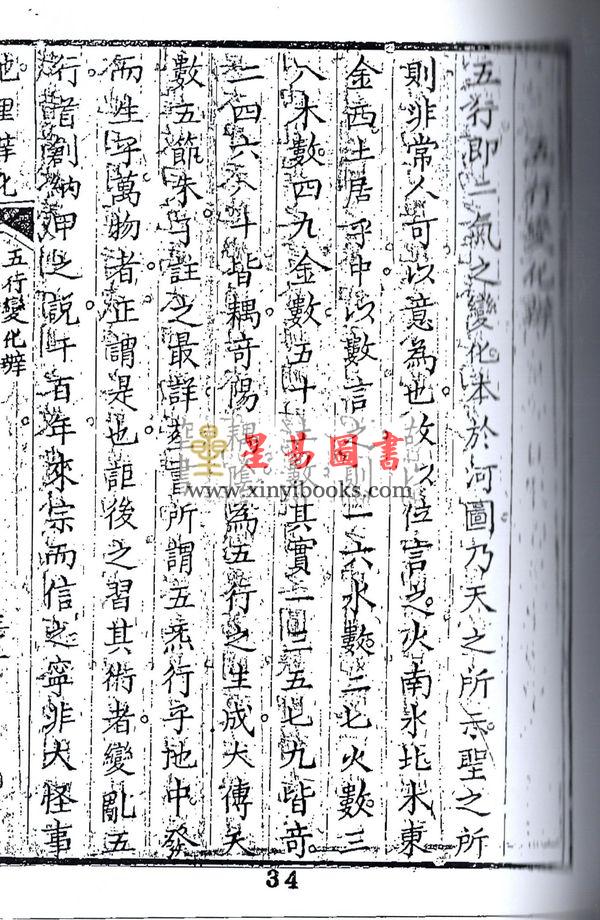 五行變化辨
五行即二氣之變化本於河圖乃天之所示聖之所
則非常人可以意為也故以位言之火南水北木東
金西土居乎中以數言之則一六水數二七火數三
八木數四九金數五十土數其實一三五七九皆奇
二四六八十皆耦奇陽耦陰為五行之生成大傳天
數五節朱子註之最詳葬書所謂五炁行乎地中發
而生乎萬物者正謂是也詎後之習其術者變亂五
行者創納甲之說千百年來宗而信之寧非大怪事
地理
五行變化辨
星易圖書
www.xinyibooks.com
34